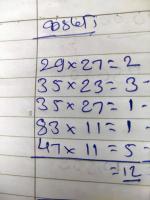 29×27=2
35×23=3-
35×27=1-
83×11=1-
47×11=5-
=12